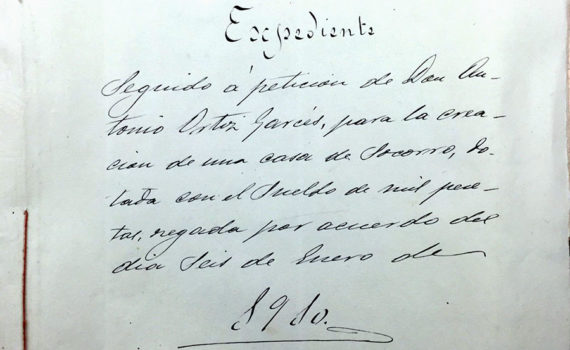 Expediente
Seguido á peticion de Don An-
tonio Ortiz Garcés, para la crea-
cion de una casa de Socorro, do-
tada con el Sueldo de mil pese-
tas, negada por acuerdo del
dia Seis de Enero de
1910.